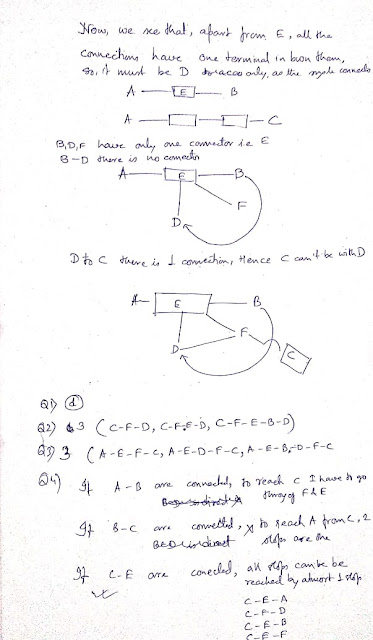 Now, we see that, apart from E, all the
connections have one terminal in b/wn them,
So, it must be D only, as the single connector
A E B
A C
B, D, F have only one connector i.e E
B-D there is no connector
A E B
F
D
D to C there is 1 connection, Hence C can't be with D
A E B
F
D C
Q1) d
Q2) 3 (C-F-D, C-F-E-D, C-F-E-B-D)
Q3) 3 (A-E-F-C, A-E-D-F-C, A-E-B-D-F-C
Q4) If A-B are connected, to reach C I have to go
throug F & E
If B-C are connected, to reach A from C, 2
stops are the
If C-E are conected, all stops can be be
reached by atmost 1 stop
C-E-A
C-F-D
C-E-B
C-E-F